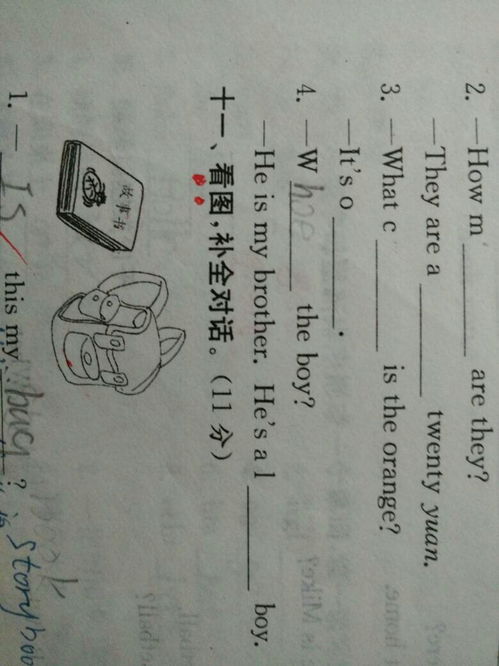 2. —How m________ are they?
—They are a________ twenty yuan.
3. —What c________ is the orange?
—It's o________.
4. —Whoe the boy?
—He is my brother. He's a l________ boy.
十一、看图,补全对话。(11分)
故事书
1. —Is this my ?
Storyboo